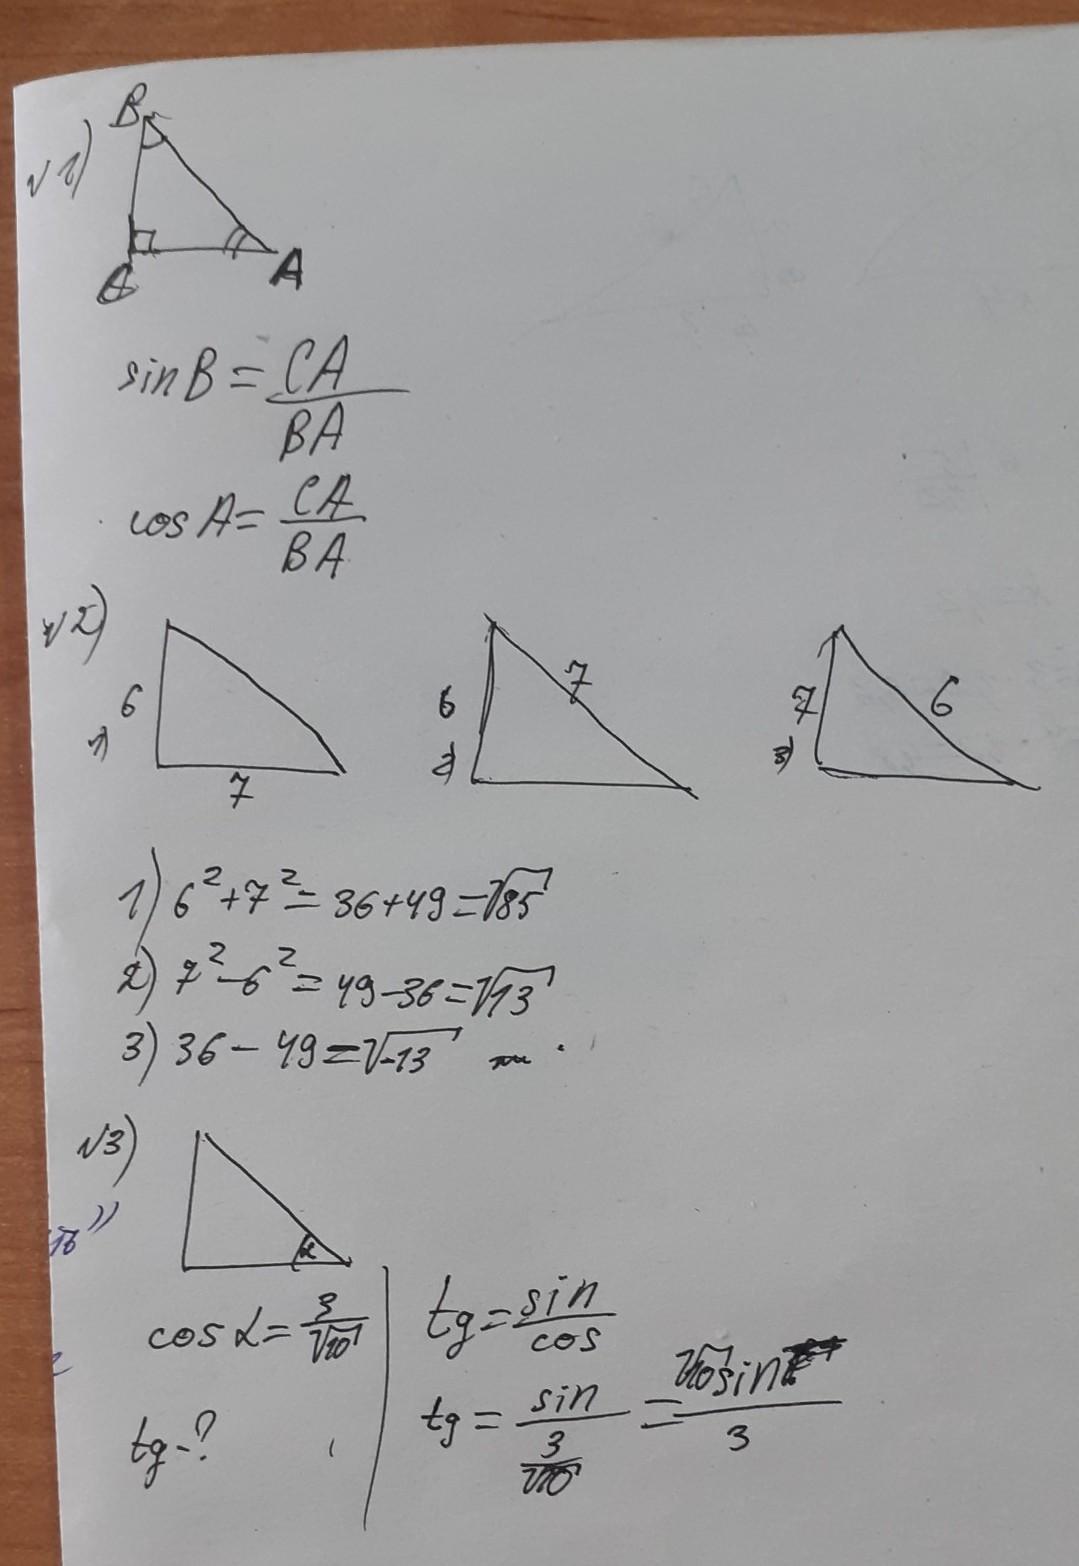 √1)
B
C
A
sin B = CA / BA
cos A = CA / BA
√2)
6
1)
7
6
2)
7
7
3)
6
1) 6² + 7² = 36 + 49 = √85
2) 7² - 6² = 49 - 36 = √13
3) 36 - 49 = √-13
√3)
α
cos α = 3 / √10
tg - ?
tg = sin / cos
tg = sin / (3 / √10) = √10 sin / 3